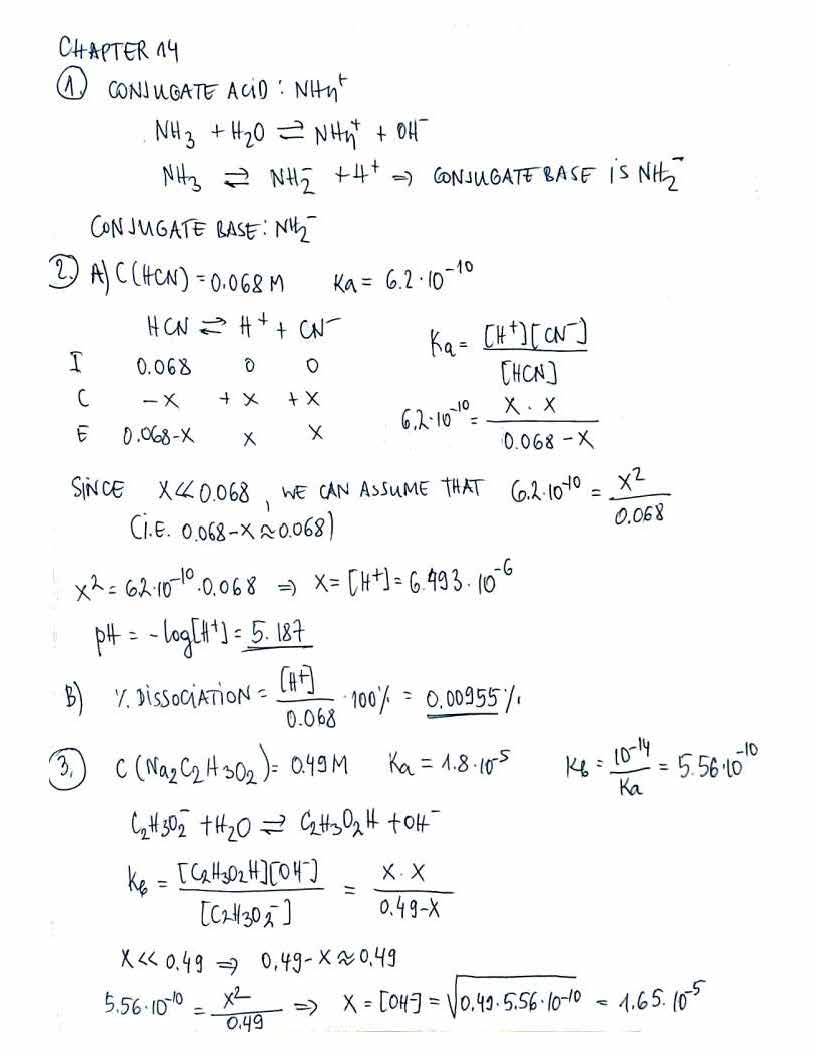 CHAPTER 14
1. CONJUGATE ACID: NH₄⁺
NH₃ + H₂O ⇌ NH₄⁺ + OH⁻
NH₃ ⇌ NH₂⁻ + H⁺ ⇒ CONJUGATE BASE IS NH₂⁻
CONJUGATE BASE: NH₂⁻
2. A) C(HCN) = 0.068 M Ka = 6.2·10⁻¹⁰
HCN ⇌ H⁺ + CN⁻ Ka = [H⁺][CN⁻] / [HCN]
I 0.068 0 0
C -X +X +X 6.2·10⁻¹⁰ = X·X / 0.068-X
E 0.068-X X X
SINCE X≪0.068, WE CAN ASSUME THAT 6.2·10⁻¹⁰ = X² / 0.068
(i.E. 0.068-X≈0.068)
X² = 62·10⁻¹⁰·0.068 ⇒ X = [H⁺] = 6.493·10⁻⁶
pH = -log[H⁺] = 5.187
B) % DISSOCIATION = [H⁺] / 0.068 · 100% = 0.00955%
3. C(Na₂C₂H₃O₂) = 0.49M Ka = 1.8·10⁻⁵ Kb = 10⁻¹⁴ / Ka = 5.56·10⁻¹⁰
C₂H₃O₂⁻ + H₂O ⇌ C₂H₃O₂H + OH⁻
Kb = [C₂H₃O₂H][OH⁻] / [C₂H₃O₂⁻] = X·X / 0.49-X
X<<0.49 ⇒ 0,49-X≈0,49
5.56·10⁻¹⁰ = X² / 0.49 ⇒ X = [OH⁻] = √0,49·5.56·10⁻¹⁰ = 1.65·10⁻⁵